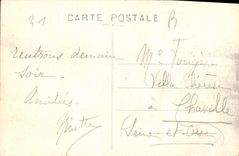 31
CARTE POSTALE
B
Rentrons demain
soir.
Amitiés.
Villa Thérèse
à Chaville
Seine-et-Oise